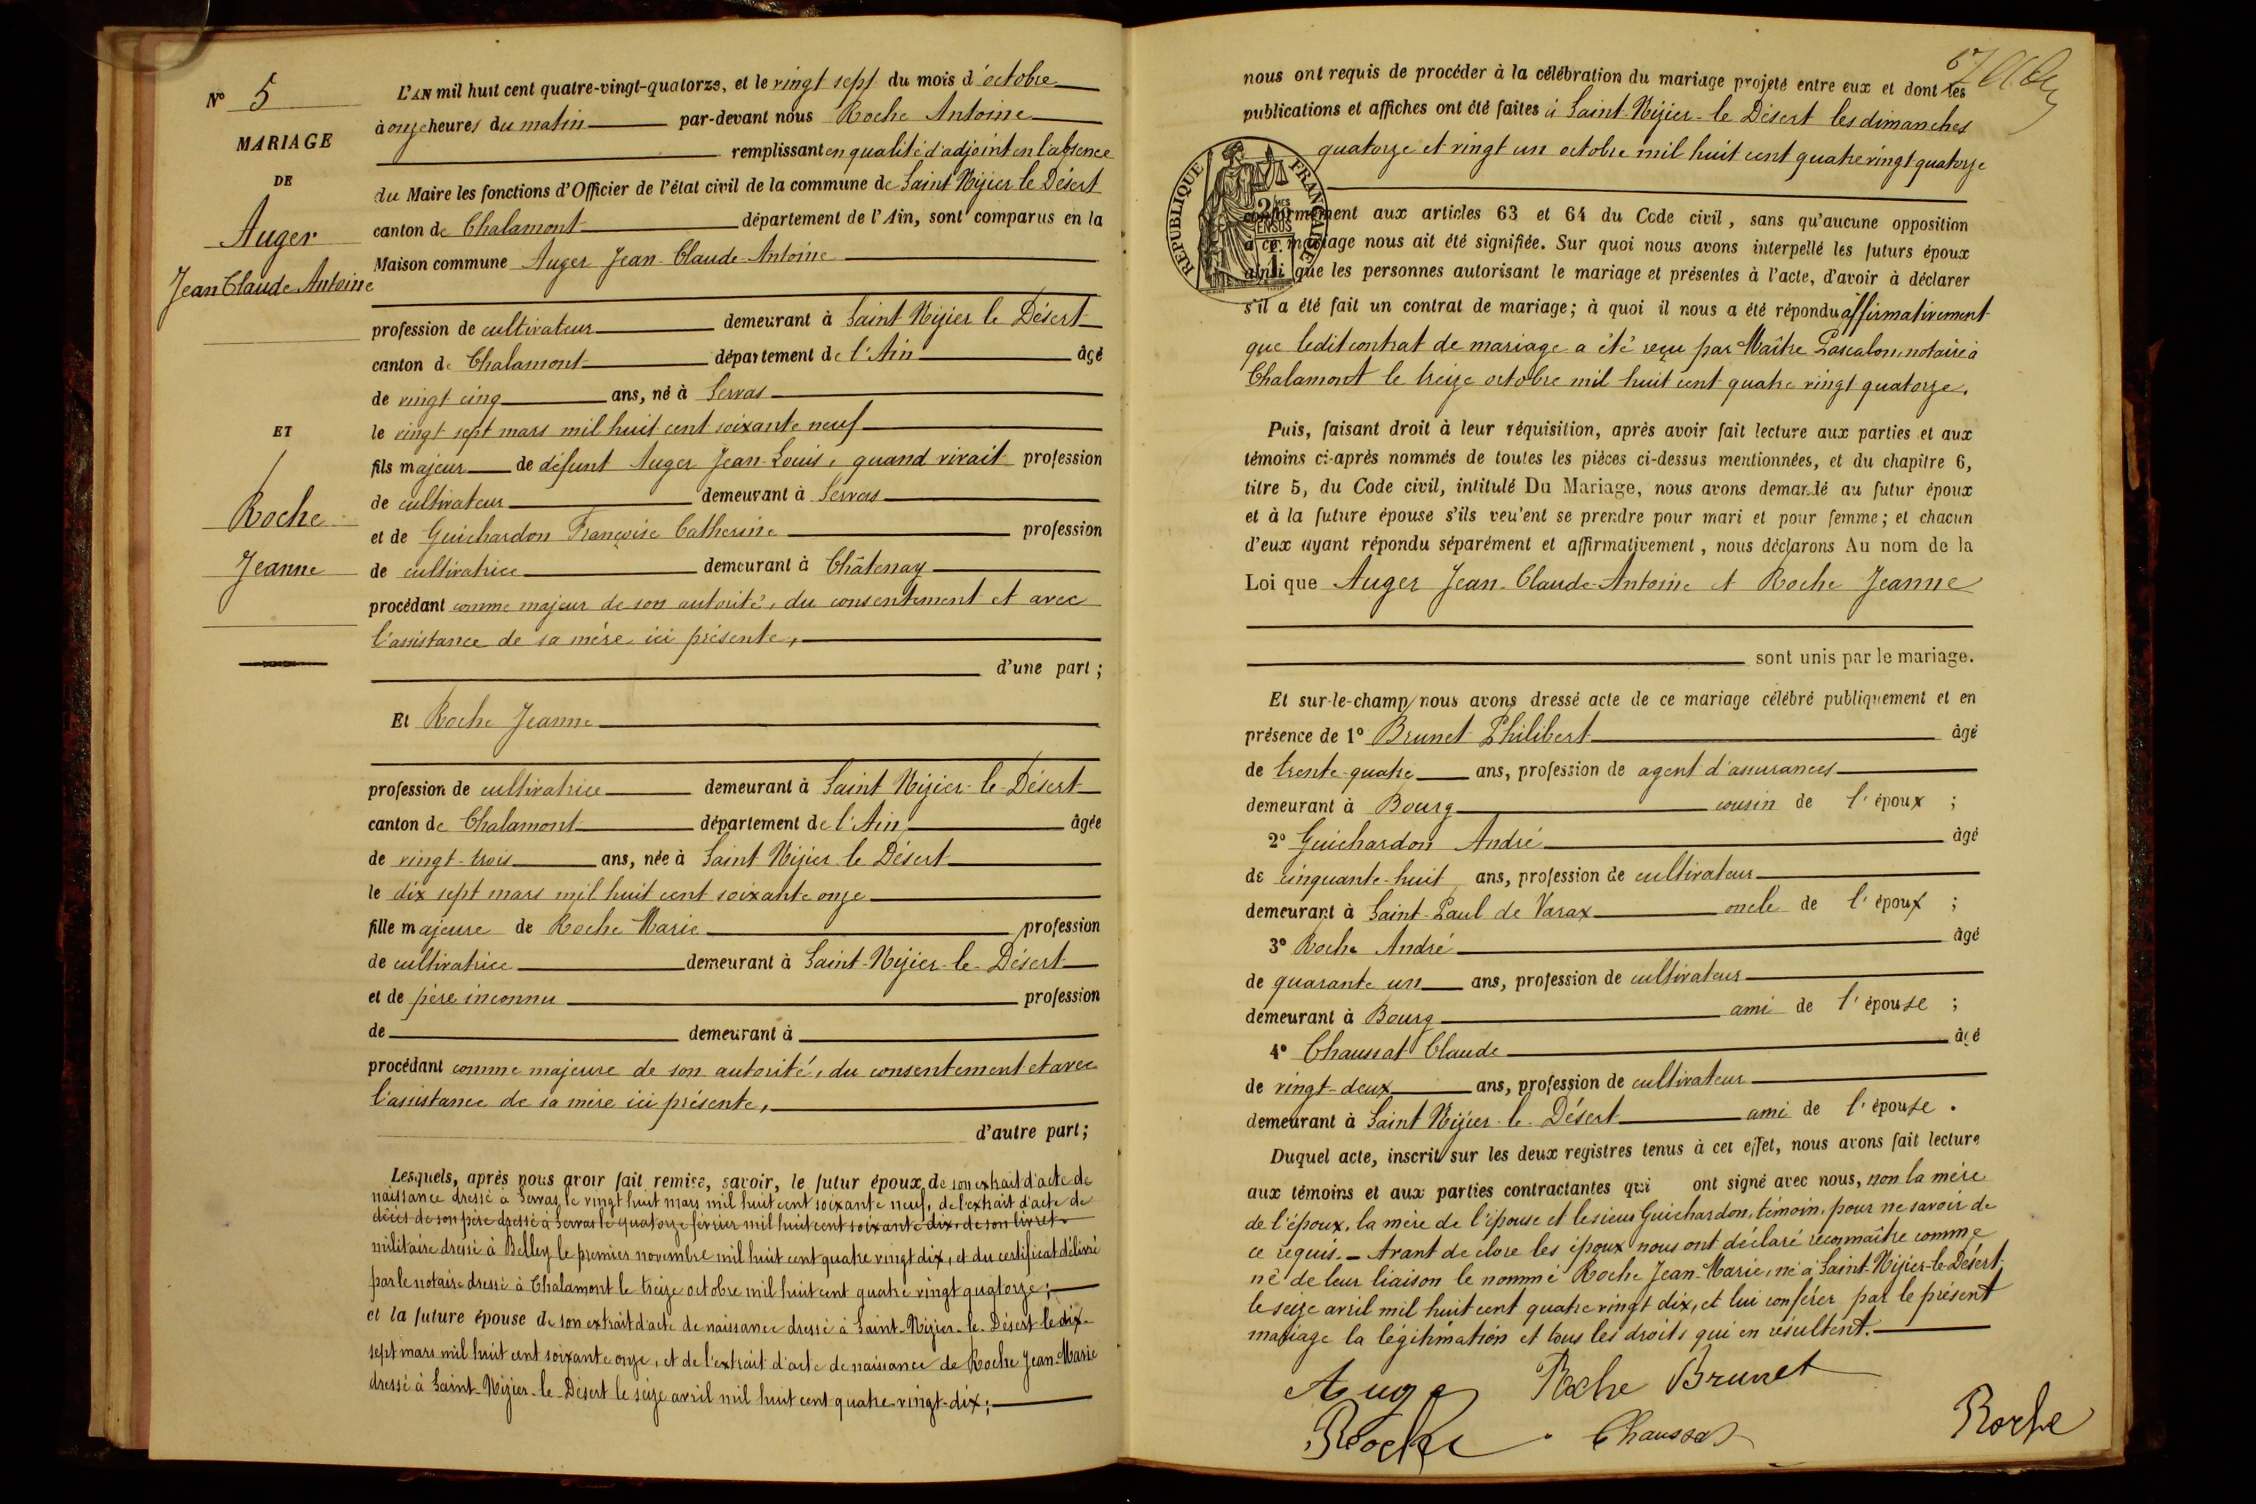 N° 5
MARIAGE
DE
Auger
Jean Claude Antoine
ET
Roche
Jeanne
L'AN mil huit cent quatre-vingt-quatorze, et le vingt sept du mois d'octobre
à onze heures du matin par-devant nous Roche Antoine
remplissant en qualité d'adjoint en l'absence
du Maire les fonctions d'Officier de l'état civil de la commune de Saint Nizier le Désert
canton de Chalamont département de l'Ain, sont comparus en la
Maison commune Auger Jean-Claude-Antoine
profession de cultivateur demeurant à Saint Nizier le Désert
canton de Chalamont département de l'Ain âgé
de vingt cinq ans, né à Servas
le vingt sept mars mil huit cent soixante neuf
fils majeur de défunt Auger Jean-Louis, quand vivait profession
de cultivateur demeurant à Servas
et de Guichardon Françoise Catherine profession
de cultivatrice demeurant à Châtenay
procédant comme majeur de son autorité, du consentement et avec
l'assistance de sa mère ici présente,
d'une part ;
Et Roche Jeanne
profession de cultivatrice demeurant à Saint Nizier-le-Désert
canton de Chalamont département de l'Ain âgée
de vingt-trois ans, née à Saint Nizier le Désert
le dix sept mars mil huit cent soixante onze
fille majeure de Roche Marie profession
de cultivatrice demeurant à Saint-Nizier-le-Désert
et de père inconnu profession
de demeurant à
procédant comme majeure de son autorité, du consentement et avec
l'assistance de sa mère ici présente,
d'autre part ;
Lesquels, après nous avoir fait remise, savoir, le futur époux de son extrait d'acte de
naissance dressé à Servas le vingt huit mars mil huit cent soixante neuf, de l'extrait d'acte de
décès de son père dressé à Servas le quatorze février mil huit cent soixante dix, de son livret
militaire dressé à Belley le premier novembre mil huit cent quatre vingt dix, et du certificat délivré
par le notaire dressé à Chalamont le treize octobre mil huit cent quatre vingt quatorze ;
et la future épouse de son extrait d'acte de naissance dressé à Saint-Nizier-le-Désert le dix-
sept mars mil huit cent soixante onze, et de l'extrait d'acte de naissance de Roche Jean-Marie
dressé à Saint-Nizier-le-Désert le seize avril mil huit cent quatre-vingt-dix ;
67
nous ont requis de procéder à la célébration du mariage projeté entre eux et dont les
publications et affiches ont été faites à Saint-Nizier-le Désert les dimanches
quatorze et vingt un octobre mil huit cent quatre vingt quatorze
RÉPUBLIQUE FRANÇAISE
conformément aux articles 63 et 64 du Code civil, sans qu'aucune opposition
à ce mariage nous ait été signifiée. Sur quoi nous avons interpellé les futurs époux
ainsi que les personnes autorisant le mariage et présentes à l'acte, d'avoir à déclarer
s'il a été fait un contrat de mariage ; à quoi il nous a été répondu affirmativement
que ledit contrat de mariage a été reçu par Maître Pascalon, notaire à
Chalamont le treize octobre mil huit cent quatre vingt quatorze.
Puis, faisant droit à leur réquisition, après avoir fait lecture aux parties et aux
témoins ci-après nommés de toutes les pièces ci-dessus mentionnées, et du chapitre 6,
titre 5, du Code civil, intitulé Du Mariage, nous avons demandé au futur époux
et à la future épouse s'ils veulent se prendre pour mari et pour femme ; et chacun
d'eux ayant répondu séparément et affirmativement, nous déclarons Au nom de la
Loi que Auger Jean-Claude-Antoine et Roche Jeanne
sont unis par le mariage.
Et sur-le-champ nous avons dressé acte de ce mariage célébré publiquement et en
présence de 1° Brunet Philibert âgé
de trente-quatre ans, profession de agent d'assurances
demeurant à Bourg cousin de l'époux ;
2° Guichardon André âgé
de cinquante-huit ans, profession de cultivateur
demeurant à Saint-Paul de Varax oncle de l'époux ;
3° Roche André âgé
de quarante un ans, profession de cultivateur
demeurant à Bourg ami de l'épouse ;
4° Chaussat Claude âgé
de vingt-deux ans, profession de cultivateur
demeurant à Saint Nizier-le-Désert ami de l'épouse.
Duquel acte, inscrit sur les deux registres tenus à cet effet, nous avons fait lecture
aux témoins et aux parties contractantes qui ont signé avec nous, non la mère
de l'époux, la mère de l'épouse et le sieur Guichardon, témoin, pour ne savoir de
ce requis. – Avant de clore les époux nous ont déclaré reconnaître comme
né de leur liaison le nommé Roche Jean-Marie, né à Saint-Nizier-le-Désert,
le seize avril mil huit cent quatre vingt dix, et lui conférer par le présent
mariage la légitimation et tous les droits qui en résultent.
Auge Roche Brunet
Roche Chaussat Roche